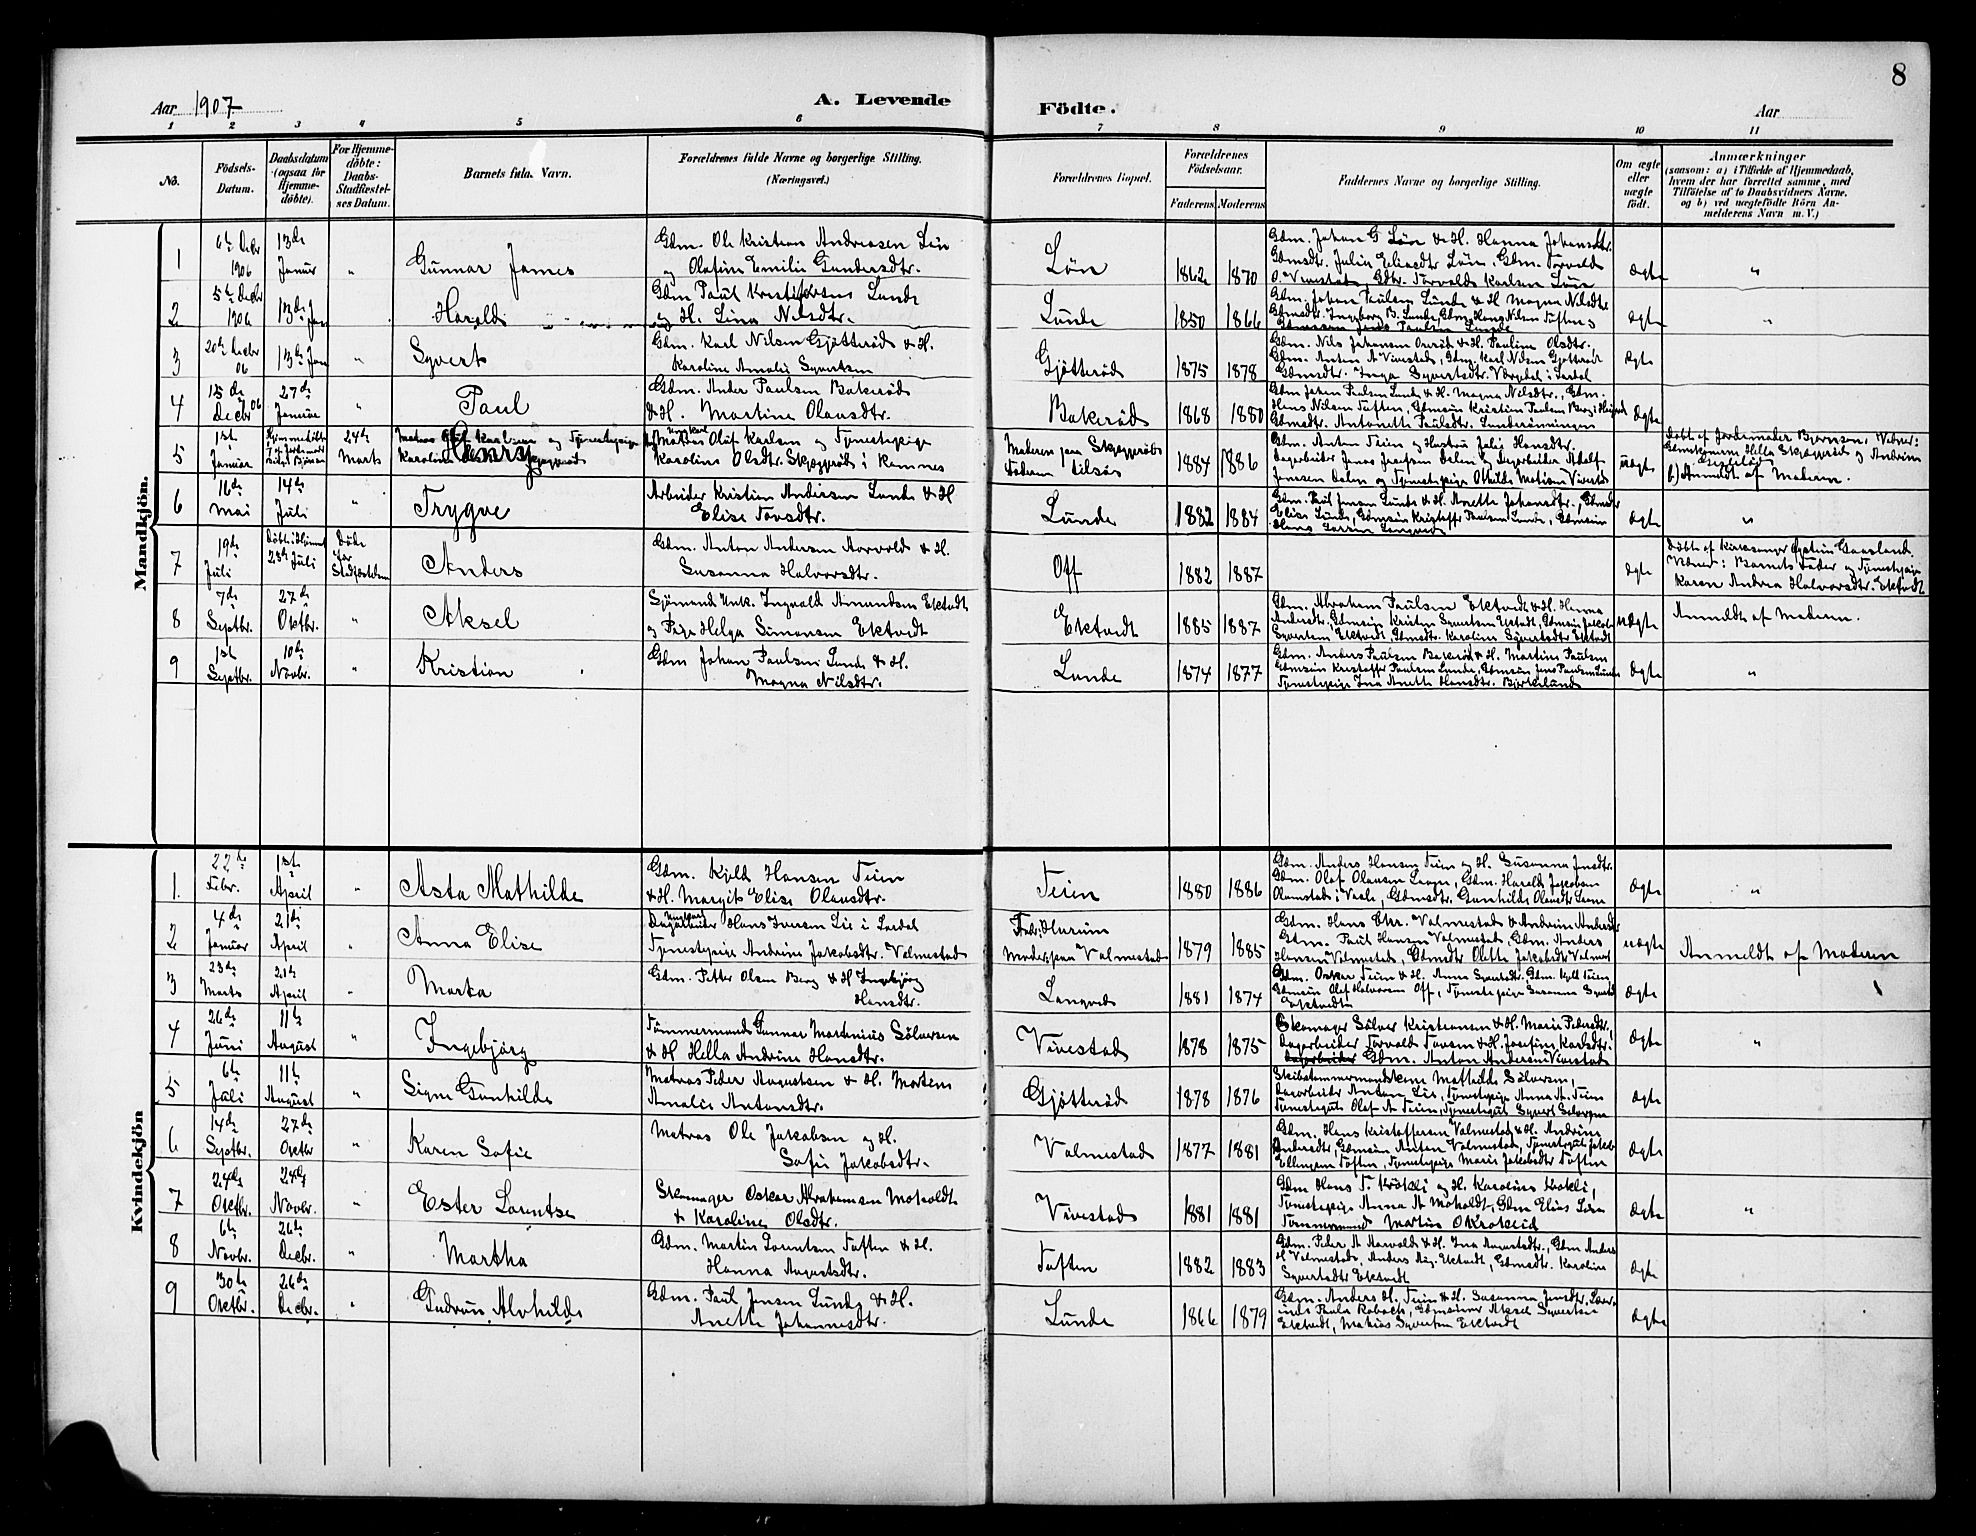 8
Aar 1907
A. Levende
Födte.
Aar
1 2 3 4 5 6 7 8 9 10 11
No.
Födsels-
Datum.
Daabsdatum
(ogsaa for
Hjemme-
döbte).
For Hjemme-
döbte:
Daabs-
Stadfæstel-
ses Datum.
Barnets fulde Navn.
Forældrenes fulde Navne og borgerlige Stilling.
(Næringsvei.)
Forældrenes Bopæl.
Forældrenes
Födselsaar.
Faderens Moderens
Faddernes Navne og borgerlige Stilling.
Om ægte
eller
uægte
födt.
Anmærkninger
(saasom: a) i Tilfælde af Hjemmedaab,
hvem der har forrettet samme, med
Tilföielse af to Daabsvidners Navne.
og b) ved uægtefödte Börn An-
melderens Navn m. V.)
Mandkjön.
1
6te Decbr
1906
13de
Januar
"
Gunnar James
Gdm. Ole Kristian Andreasen Lin
og Olafine Emilie Gundersdtr.
Lön
1862 1870
Gdm. Johan G Lön & H. Hanna Johansdtr.
ægte
"
2
5te Decbr
1906
13de Jan
Harald
Gdm Paul Lunde
og H. Lina Nilsdtr.
Lunde
1850 1866
Gdm. Johan Paulsen Lunde & H Magna Nilsdtr
Gdmsdtr. Ingeborg B. Lunde, Gdm. Hans Nilsen Toften
Gdmssön Jens Paulsen Lunde
ægte
"
3
20de Decbr
06
13de Jan
"
Syvert
Gdm. Karl Nilsen Gjötteröd & H.
Karoline Amalie Syvertsen
Gjötteröd
1875 1878
Gdm. Nils Johansen & H. Pauline Olsdtr.
Gdm. Anton A Vivestad, Gdm. Karl Nilsen Gjötteröd
Gdmsdtr. Inga Syvertsdtr. i Lardal
ægte
4
15de
Decbr 06
27de
Januar
"
Paul
Gdm. Ander Paulsen Bakeröd
& H. Martine Olausdtr.
Bakeröd
1868 1880
Gdm Johan Paulsen Lunde & H. Magna Nilsdtr., Gdm.
Hans Nilsen Toften, Gdmsön Kristian Paulsen Berg i
Gdmsdtr. Antonette Paulsdtr.
ægte
5
1st
Januar
Hjemmedöbt
24de
Marts
Henry
Matros Oluf Karlsen og Tjenestepige
Karoline Olsdtr. Skjæggeröd i Ramnes
Moderen paa Skjæggeröd
Faderen tilsös
1884 1886
Gdm. Anton Teien og Hustru Julie Hansdtr.
Dagarbeider Jonas Josefsen Dalen, Dagarbeider Adolf
Jensen Dalen og Tjenestepige Othilde Vivestad
uægte
Döbt af Jordemoder Björnsen, Vidner:
b) Anmeldt af Moderen.
6
16de
Mai
14de
Juli
"
Trygve
Arbeider Kristian Andersen Lunde & H
Elise Tovsdtr.
Lunde
1882 1884
Gdm. Paul Jensen Lunde & H. Anette Johansdtr., Gdmsdtr
Elise Lunde, Gdmsön Kristoffer Paulsen Lunde, Gdmsön
Hans Larsen Langved
ægte
"
7
19de
Juli
Döbt i Hjemmet
23de Juli
Döde
för
Stadfæstelsen
Anders
Gdm. Anton Andersen Aarvold & H.
Susanna Halvorsdtr.
Off
1882 1887
ægte
Döbt af Kirkesanger Öystein Gaasland.
Vidner: Barnets Fader og Tjenestepige
Karen Andrea Halvorsdtr. Ektvedt
8
7de
Septbr.
27de
Oktbr.
"
Aksel
Sjömand Unk. Ingvald Amundsen Ektvedt
og Pige Helga Simonsen Ektvedt
Ektvedt
1885 1887
Gdm. Abraham Paulsen Ektvedt & H. Hanna
Andersdtr., Gdmsön Kristian Syvertsen Ektvedt, Gdmsön Jakob
Syvertsen Ektvedt, Gdmsdtr. Karoline Syvertsdtr Ektvedt
uægte
Anmeldt af Moderen.
9
1st
Septbr.
10de
Novbr.
"
Kristian
Gdm Johan Paulsen Lunde & H.
Magna Nilsdtr.
Lunde
1874 1877
Gdm. Anders Paulsen Bakeröd & H. Martine Paulsen
Gdmssön Kristoffer Paulsen Lunde, Gdmssön Jens Paulsen Lunde
Tjenestepige Ina Anette Hansdtr. Bjerkelund
ægte
"
Kvindekjön
1.
22de
Febr.
1st
April
"
Asta Mathilde
Gdm. Kjeld Hansen Teien
& H. Margit Elise Olausdtr.
Teien
1880 1886
Gdm. Anders Hansen Teien og H. Susanna Jensdtr.
Gdm. Olaf Olausen, Gdm. Harald Jakobsen
Olumstad i Vaale, Gdmsdtr. Gunhilde Olausdtr
ægte
"
2
4de
Januar
21de
April
"
Anna Elise
Ungkarl
Dagarbeider Hans Iversen Lie i Lardal
Tjenestepige Andrine Jakobsdtr. Valmestad
Fader: Hurum
Moder: paa Valmestad
1879 1885
Gdm. Hans Chr. Valmestad & Andrine Andersdtr
Gdm. Paul Hansen Valmestad, Gdm. Anders
Hansen Valmestad, Gdmsdtr Olette Jakobsdtr Valmestad
uægte
Anmeldt af Moderen
3
23de
Marts
21de
April
"
Marta
Gdm. Petter Olsen Berg & H. Ingebjörg
Hansdtr.
Langved
1881 1874
Gdm. Oskar Teien & H. Anna Syvertsdtr. Gdm. Kjell Teien
Gdmsön Olaf Halvorsen Off, Tjenestepige Susanna Syvertsdtr
Ektvedt
ægte
4
26de
Juni
11te
August
Ingebjörg
Tömmermand Gunnar Mardenius Sölversen
& H Hella Andrine Hansdtr.
Vivestad
1878 1875
Skomager Sölver Kristiansen & H. Marie Pedersdtr,
Dagarbeider Torvald Tovsen & H. Josefine Karlsdtr.
Gdm. Anton Andersen Vivestad
ægte
"
5
6te
Juli
11te
August
"
Signe Gunhilde
Matros Peder Augustsen & H. Martine
Amalie Antonsdtr.
Gjötteröd
1878 1876
Skibstømmermandskone Mathilde Sölversen,
Dagarbeider Anton Lie, Tjenestepige Anna A. Teien
Tjenestegut Olaf A Teien, Tjenestegut Syvert Sölversen
ægte
6
14de
Septbr.
27de
Octbr
"
Karen Sofie
Matros Ole Jakobsen og H.
Sofie Jakobsdtr.
Valmestad
1877 1881
Gdm. Hans Kristoffersen Valmestad & H. Andrine
Andersdtr, Gdmsön Anton Valmestad, Tjenestegut Jakob
Ellingsen Toften, Tjenestepige Marie Jakobsdtr Toften
ægte
7
24de
Octbr.
24de
Novbr.
"
Ester Lorentse
Skomager Oskar Abrahamsen Moholdt
& Karoline Olsdtr.
Vivestad
1881 1881
Gdm Hans T. Krökli og H. Karoline Krökli,
Tjenestepige Anna A Moholdt, Gdm Elias Lön
Tömmermand Martin O Krökeid
ægte
"
8
6te
Novbr.
26de
Decbr.
"
Martha
Gdm. Martin Lorentsen Toften & H.
Hanna Augustsdtr.
Toften
1882 1883
Gdm. Peder A Aarvold & H. Ina Augustsdtr., Gdm Anders
H Valmestad, Anders Aug. Ektvedt, Gdmsdtr. Karoline
Syvertsdtr Ektvedt
ægte
9
30te
Octbr.
26de
Decbr.
"
Gudrun Alvhilde
Gdm. Paul Jensen Lunde & H.
Anette Johannesdtr.
Lunde
1866 1879
Gdm. Anders H. Teien & H. Susanna Jensdtr, Lærer-
inde Paula Robach, Gdmssöner Aksel Syvertsen
Ektvedt, Mathias Syvertsen Ektvedt
ægte